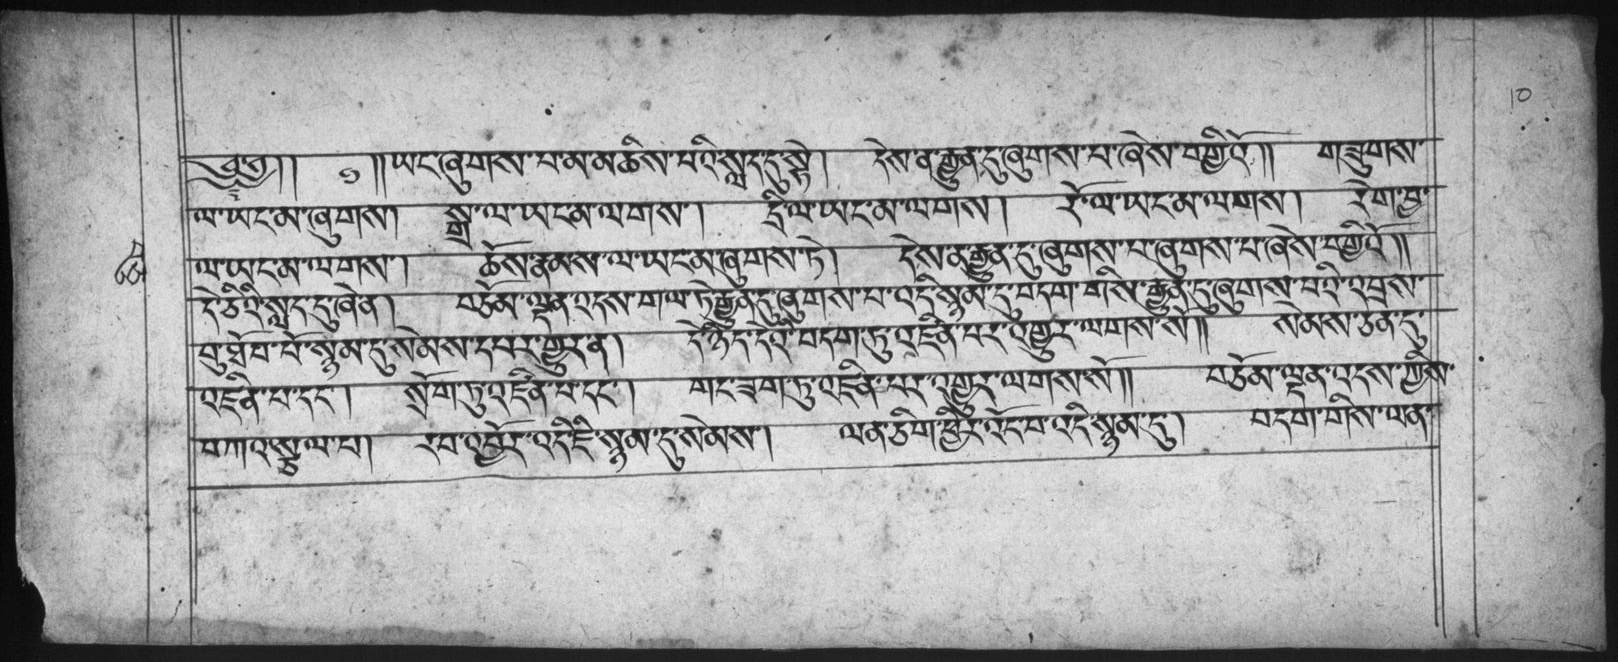 ༄༅། ། ༡ །།ཡང་ཞུགས་པ་མ་མཆིས་པའི་སླད་དུ་སྟེ། དེས་ན་རྒྱུན་དུ་ཞུགས་པ་ཞེས་བགྱིའོ།། གཟུགས་
ལ་ཡང་མ་ཞུགས། སྒྲ་ལ་ཡང་མ་ལགས། དྲི་ལ་ཡང་མ་ལགས། རོ་ལ་ཡང་མ་ལགས། རེག་བྱ་
ལ་ཡང་མ་ལགས། ཆོས་རྣམས་ལ་ཡང་མ་ཞུགས་ཏེ། དེས་ན་རྒྱུན་དུ་ཞུགས་པ་ཞུགས་པ་ཞེས་བགྱིའོ།།
དེ་ཅིའི་སླད་དུ་ཞེ་ན། བཅོམ་ལྡན་འདས་གལ་ཏེ་རྒྱུན་དུ་ཞུགས་པ་འདི་སྙམ་དུ་བདག་གིས་རྒྱུན་དུ་ཞུགས་པའི་འབྲས་
བུ་ཐོབ་པོ་སྙམ་དུ་སེམས་པར་གྱུར་ན། དེ་ཉིད་དེའི་བདག་ཏུ་འཛིན་པར་འགྱུར་ལགས་སོ།། སེམས་ཅན་དུ་
འཛིན་པ་དང་། སྲོག་ཏུ་འཛིན་པ་དང་། གང་ཟག་ཏུ་འཛིན་པར་འགྱུར་ལགས་སོ།། བཅོམ་ལྡན་འདས་ཀྱིས་
བཀའ་སྩལ་པ། རབ་འབྱོར་འདི་ཇི་སྙམ་དུ་སེམས། ལན་ཅིག་ཕྱིར་འོང་བ་འདི་སྙམ་དུ། བདག་གིས་ལན་
10